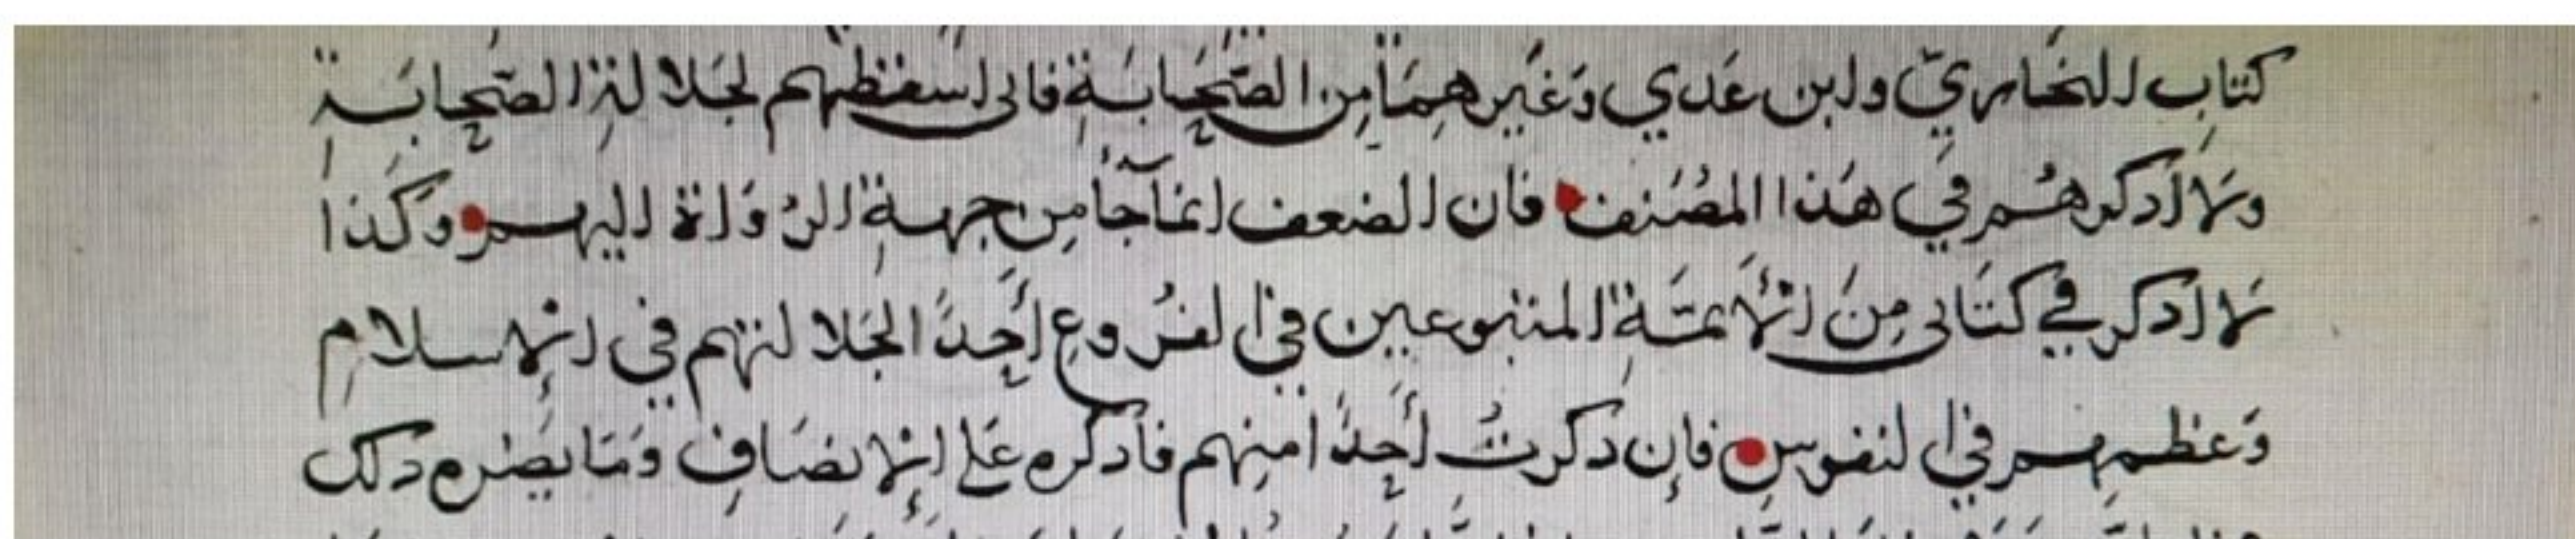 كتاب البخاري وابن عدي وغيرهما من الصحابة فاني اسقطهم لجلالة الصحابة
ولا أذكرهم في هذا المصنف فان الضعف انما جا من جهة الرواة اليهم وكذا
لا اذكر في كتابي من الأئمة المتبوعين في الفروع أحدا لجلالتهم في الإسلام
وعظمتهم في النفوس فإن ذكرت أحدا منهم فأذكره على الإنصاف وما يضره ذلك